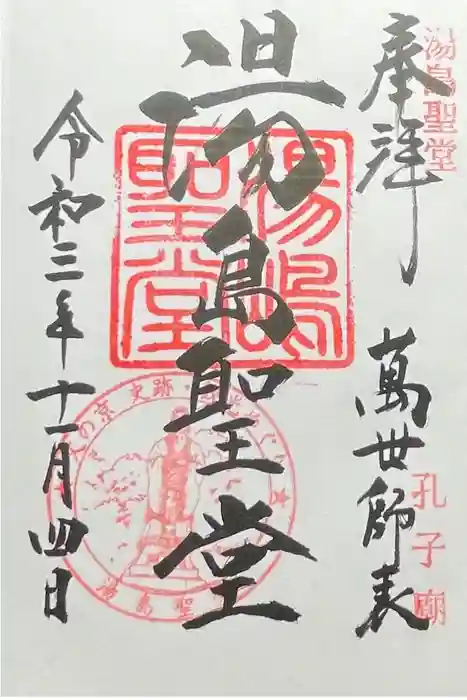 湯島聖堂
奉拝
萬世師表
孔子廟
湯島聖堂
湯嶋聖堂
令和三年十一月四日
史跡
湯島聖堂